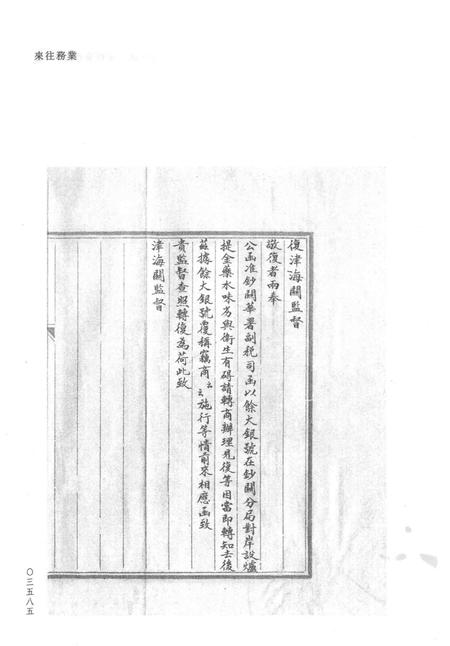 來往務業
復津海關監督
敬復者兩奉
公函准鈔關華署副稅司函以餘大銀號在鈔關分局對岸設爐
提金藥水味劣與衛生有碍請轉商辦理見復等因當即轉知去後
茲據餘大銀號覆稱竊商云云施行等情前來相應函致
貴監督查照轉復為荷此致
津海關監督
〇三五八五